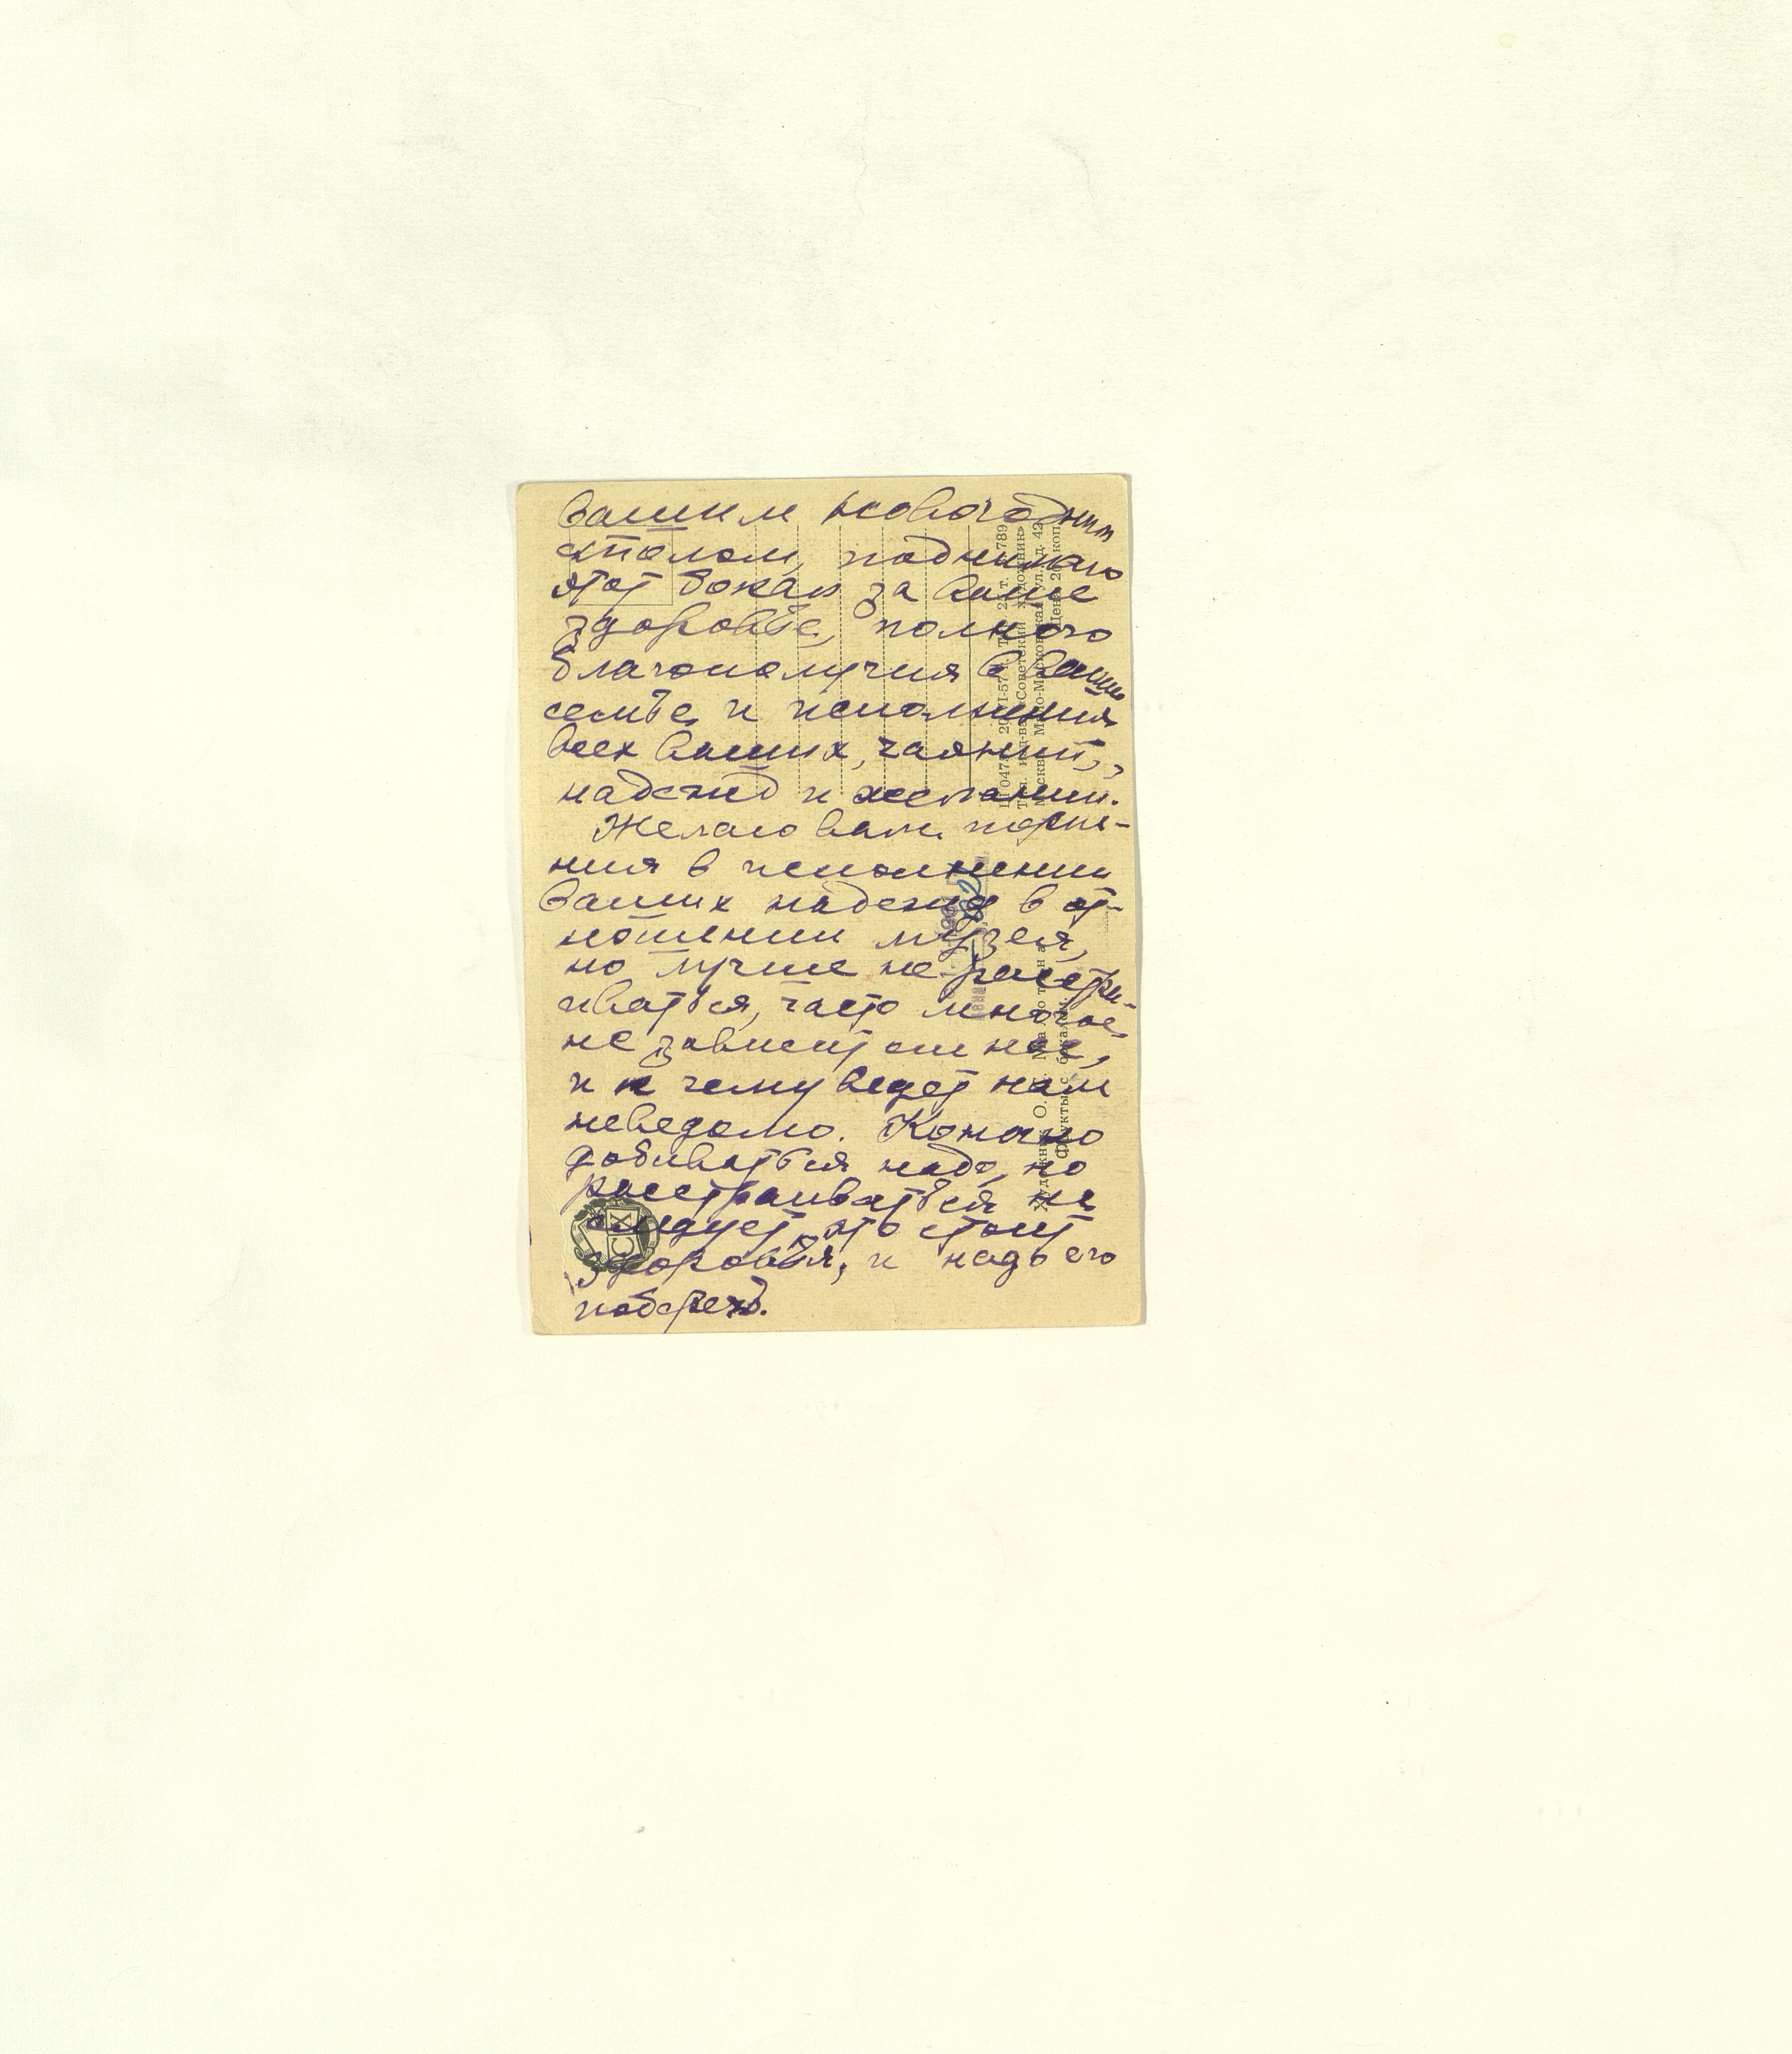 вашим новогодним
столом, поднимаю
этот бокал за ваше
здоровье, полного
благополучия в вашей
семье, и исполнения
всех ваших, чаяний,
надежд и желаний.
Желаю вам терпе-
ния в исполнении
ваших надежд в от-
ношении музея,
но лучше не расстра-
иваться, часто многое
не зависит от нас,
и к чему ведет нам
неведомо. Конечно
добиваться надо, но
расстраиваться не
следует, это стоит
здоровья, и надо его
поберечь.
Художник О. 
Фрукты с бокалом.
«Советский художник»
Москва, Мало-Московская ул., д. 42
Цена 20 коп.
ССХ